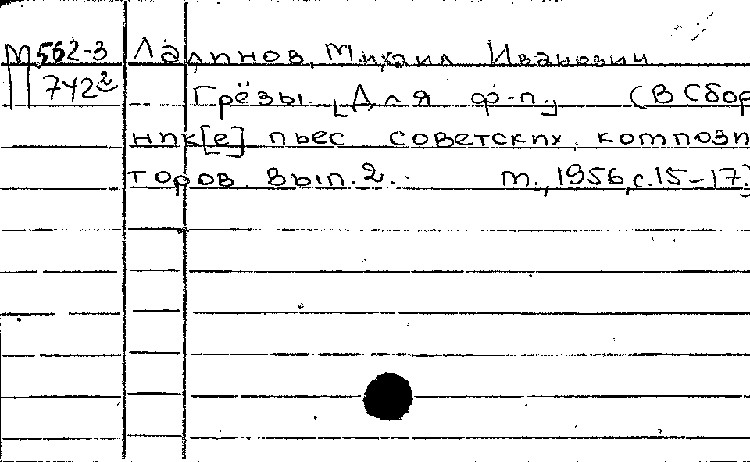 М 562-3 Лапинов, Михаил Иванович
742² Грёзы. [Для ф-п.] (В Сбор
ник[е] пьес советских компози
торов. Вып. 2. М., 1956, с. 15-17)